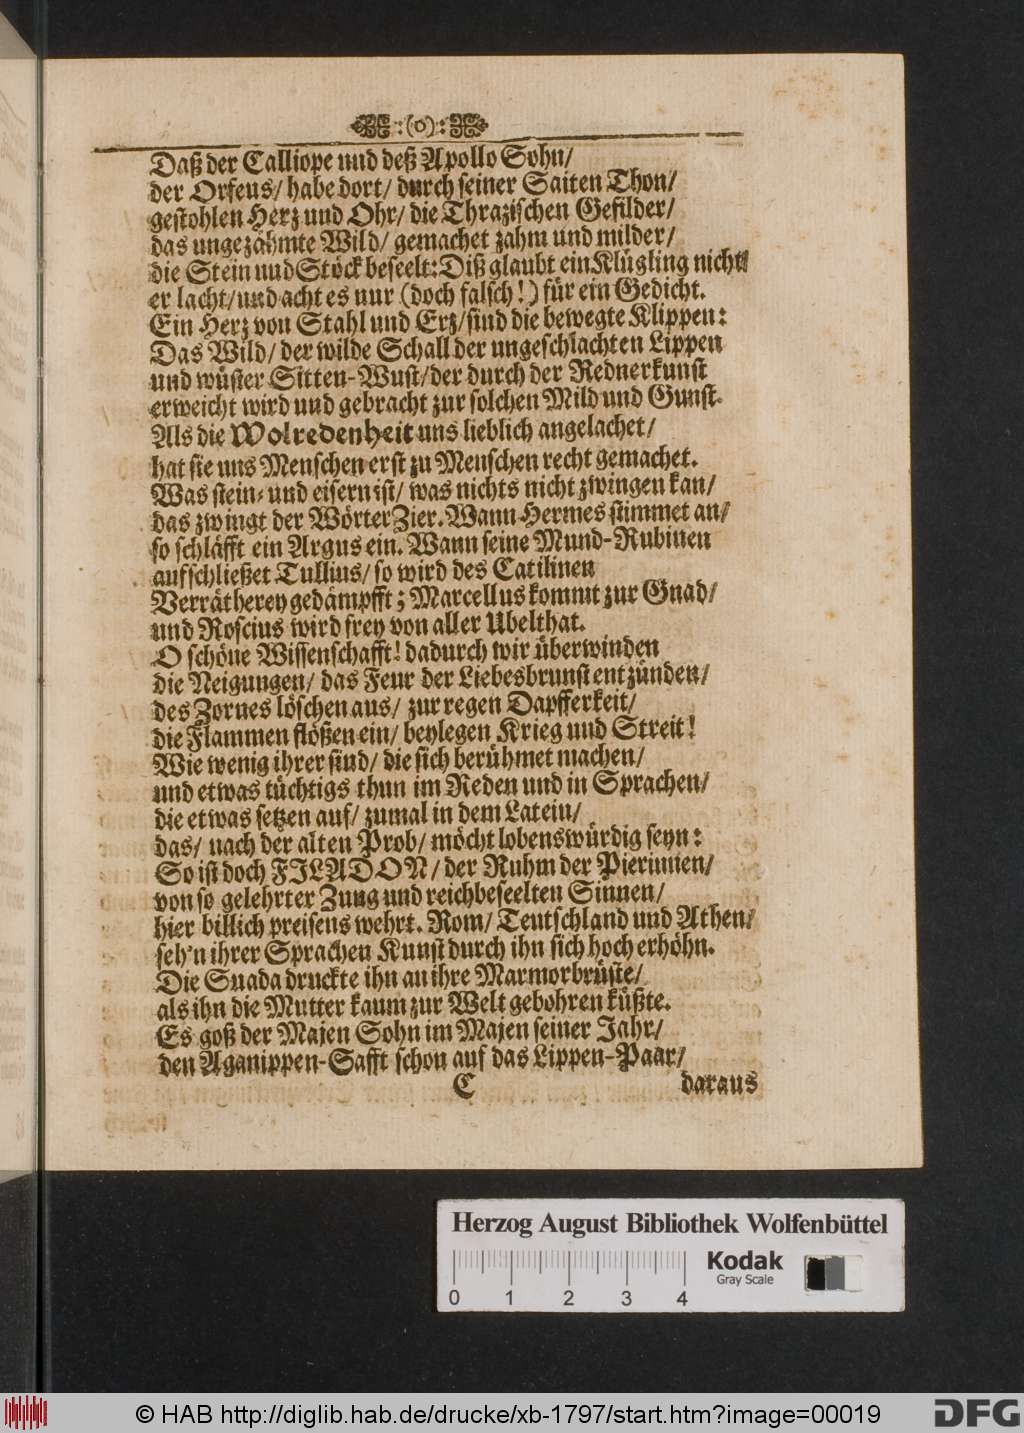 :(o):
Daß der Calliope und deß Apollo Sohn/
der Orfeus/ habe dort/ durch seiner Saiten Thon/
gestohlen Herz und Ohr/ die Thrazischen Gefilder/
das ungezähmte Wild/ gemachet zahm und milder/
die Stein und Stöck beseelt: Diß glaubt ein Klügling nicht/
er lacht/ und acht es nur (doch falsch!) für ein Gedicht.
Ein Herz von Stahl und Erz/ sind die bewegte Klippen:
Das Wild/ der wilde Schall der ungeschlachten Lippen
und wüster Sitten-Wust/ der durch der Rednerkunst
erweicht wird und gebracht zur solchen Mild und Gunst.
Als die Wolredenheit uns lieblich angelachet/
hat sie uns Menschen erst zu Menschen recht gemachet.
Was stein- und eisern ist/ was nichts nicht zwingen kan/
das zwingt der Wörter Zier. Wann Hermes stimmet an/
so schläfft ein Argus ein. Wann seine Mund-Rubinen
aufschließet Tullius/ so wird des Catilinen
Verrätherey gedämpfft; Marcellus kommt zur Gnad/
und Roscius wird frey von aller Ubelthat.
O schöne Wissenschafft! dadurch wir überwinden
die Neigungen/ das Feur der Liebesbrunst entzünden/
des Zornes löschen aus/ zur regen Dapfferkeit/
die Flammen flößen ein/ beylegen Krieg und Streit!
Wie wenig ihrer sind/ die sich berühmet machen/
und etwas tüchtigs thun im Reden und in Sprachen/
die etwas setzen auf/ zumal in dem Latein/
das/ nach der alten Prob/ möcht lobenswürdig seyn:
So ist doch FILADON/ der Ruhm der Pierinnen/
von so gelehrter Zung und reichbeseelten Sinnen/
hier billich preisens wehrt. Rom/ Teutschland und Athen/
seh'n ihrer Sprachen Kunst durch ihn sich hoch erhöhn.
Die Suada druckte ihn an ihre Marmorbrüste/
als ihn die Mutter kaum zur Welt gebohren küßte.
Es goß der Majen Sohn im Majen seiner Jahr/
den Aganippen-Safft schon auf das Lippen-Paar/
C daraus
Herzog August Bibliothek Wolfenbüttel
0 1 2 3 4
Kodak
Gray Scale
© HAB http://diglib.hab.de/drucke/xb-1797/start.htm?image=00019
DFG